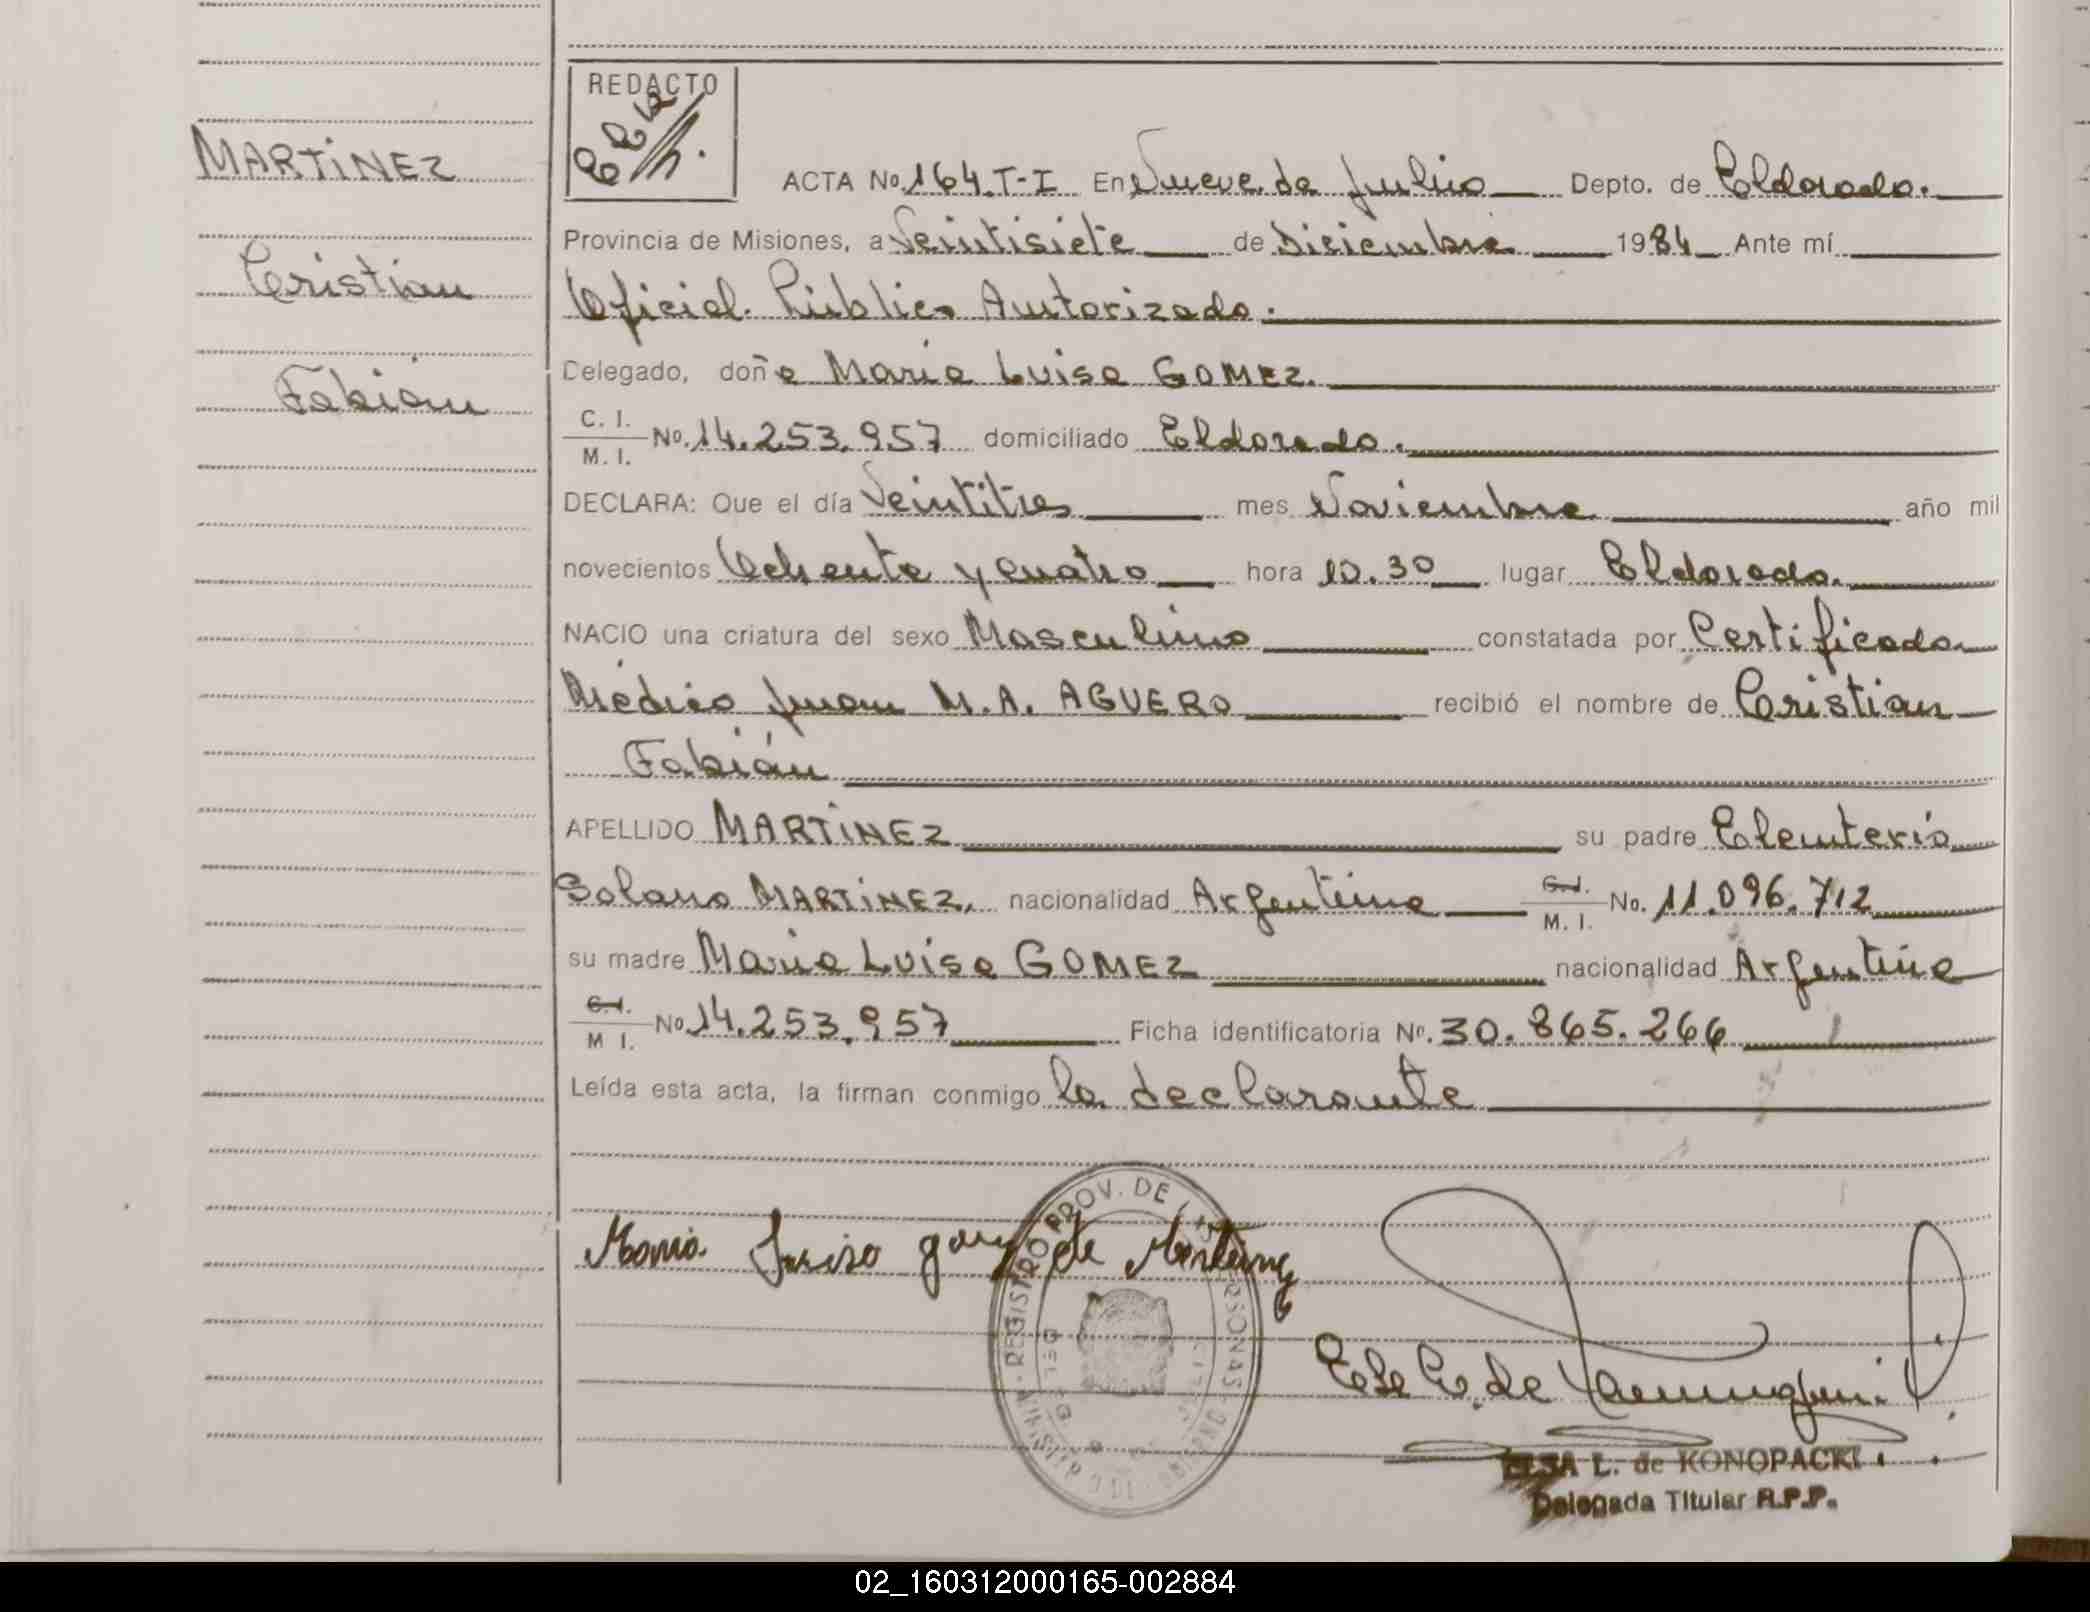 REDACTO
MARTINEZ
ACTA No. 164. T-I En Nueve de Julio Depto. de Eldorado.
Provincia de Misiones, a Veintisiete de Diciembre 1984 Ante mí
Cristian
Oficial Público Autorizado.
Delegado, doña María Luisa GOMEZ.
Fabián
C. I.
M. I. No. 14.253.957 domiciliado Eldorado.
DECLARA: Que el día Veintitres mes Noviembre año mil
novecientos Ochenta y cuatro hora 10.30 lugar Eldorado.
NACIO una criatura del sexo Masculino constatada por Certificado
Médico Juan M.A. AGUERO recibió el nombre de Cristian
Fabián
APELLIDO MARTINEZ su padre Eleuterio
Solano MARTINEZ, nacionalidad Argentina C.I. M. I. No. 11.096.712
su madre María Luisa GOMEZ nacionalidad Argentina
C.I.
M I. No. 14.253.957 Ficha identificatoria No. 30.865.266
Leída esta acta, la firman conmigo la declarante
María Luisa de Martinez
REGISTRO PROV. DE
ELSA L. de KONOPACKI
Delegada Titular R.P.P.
02_160312000165-002884